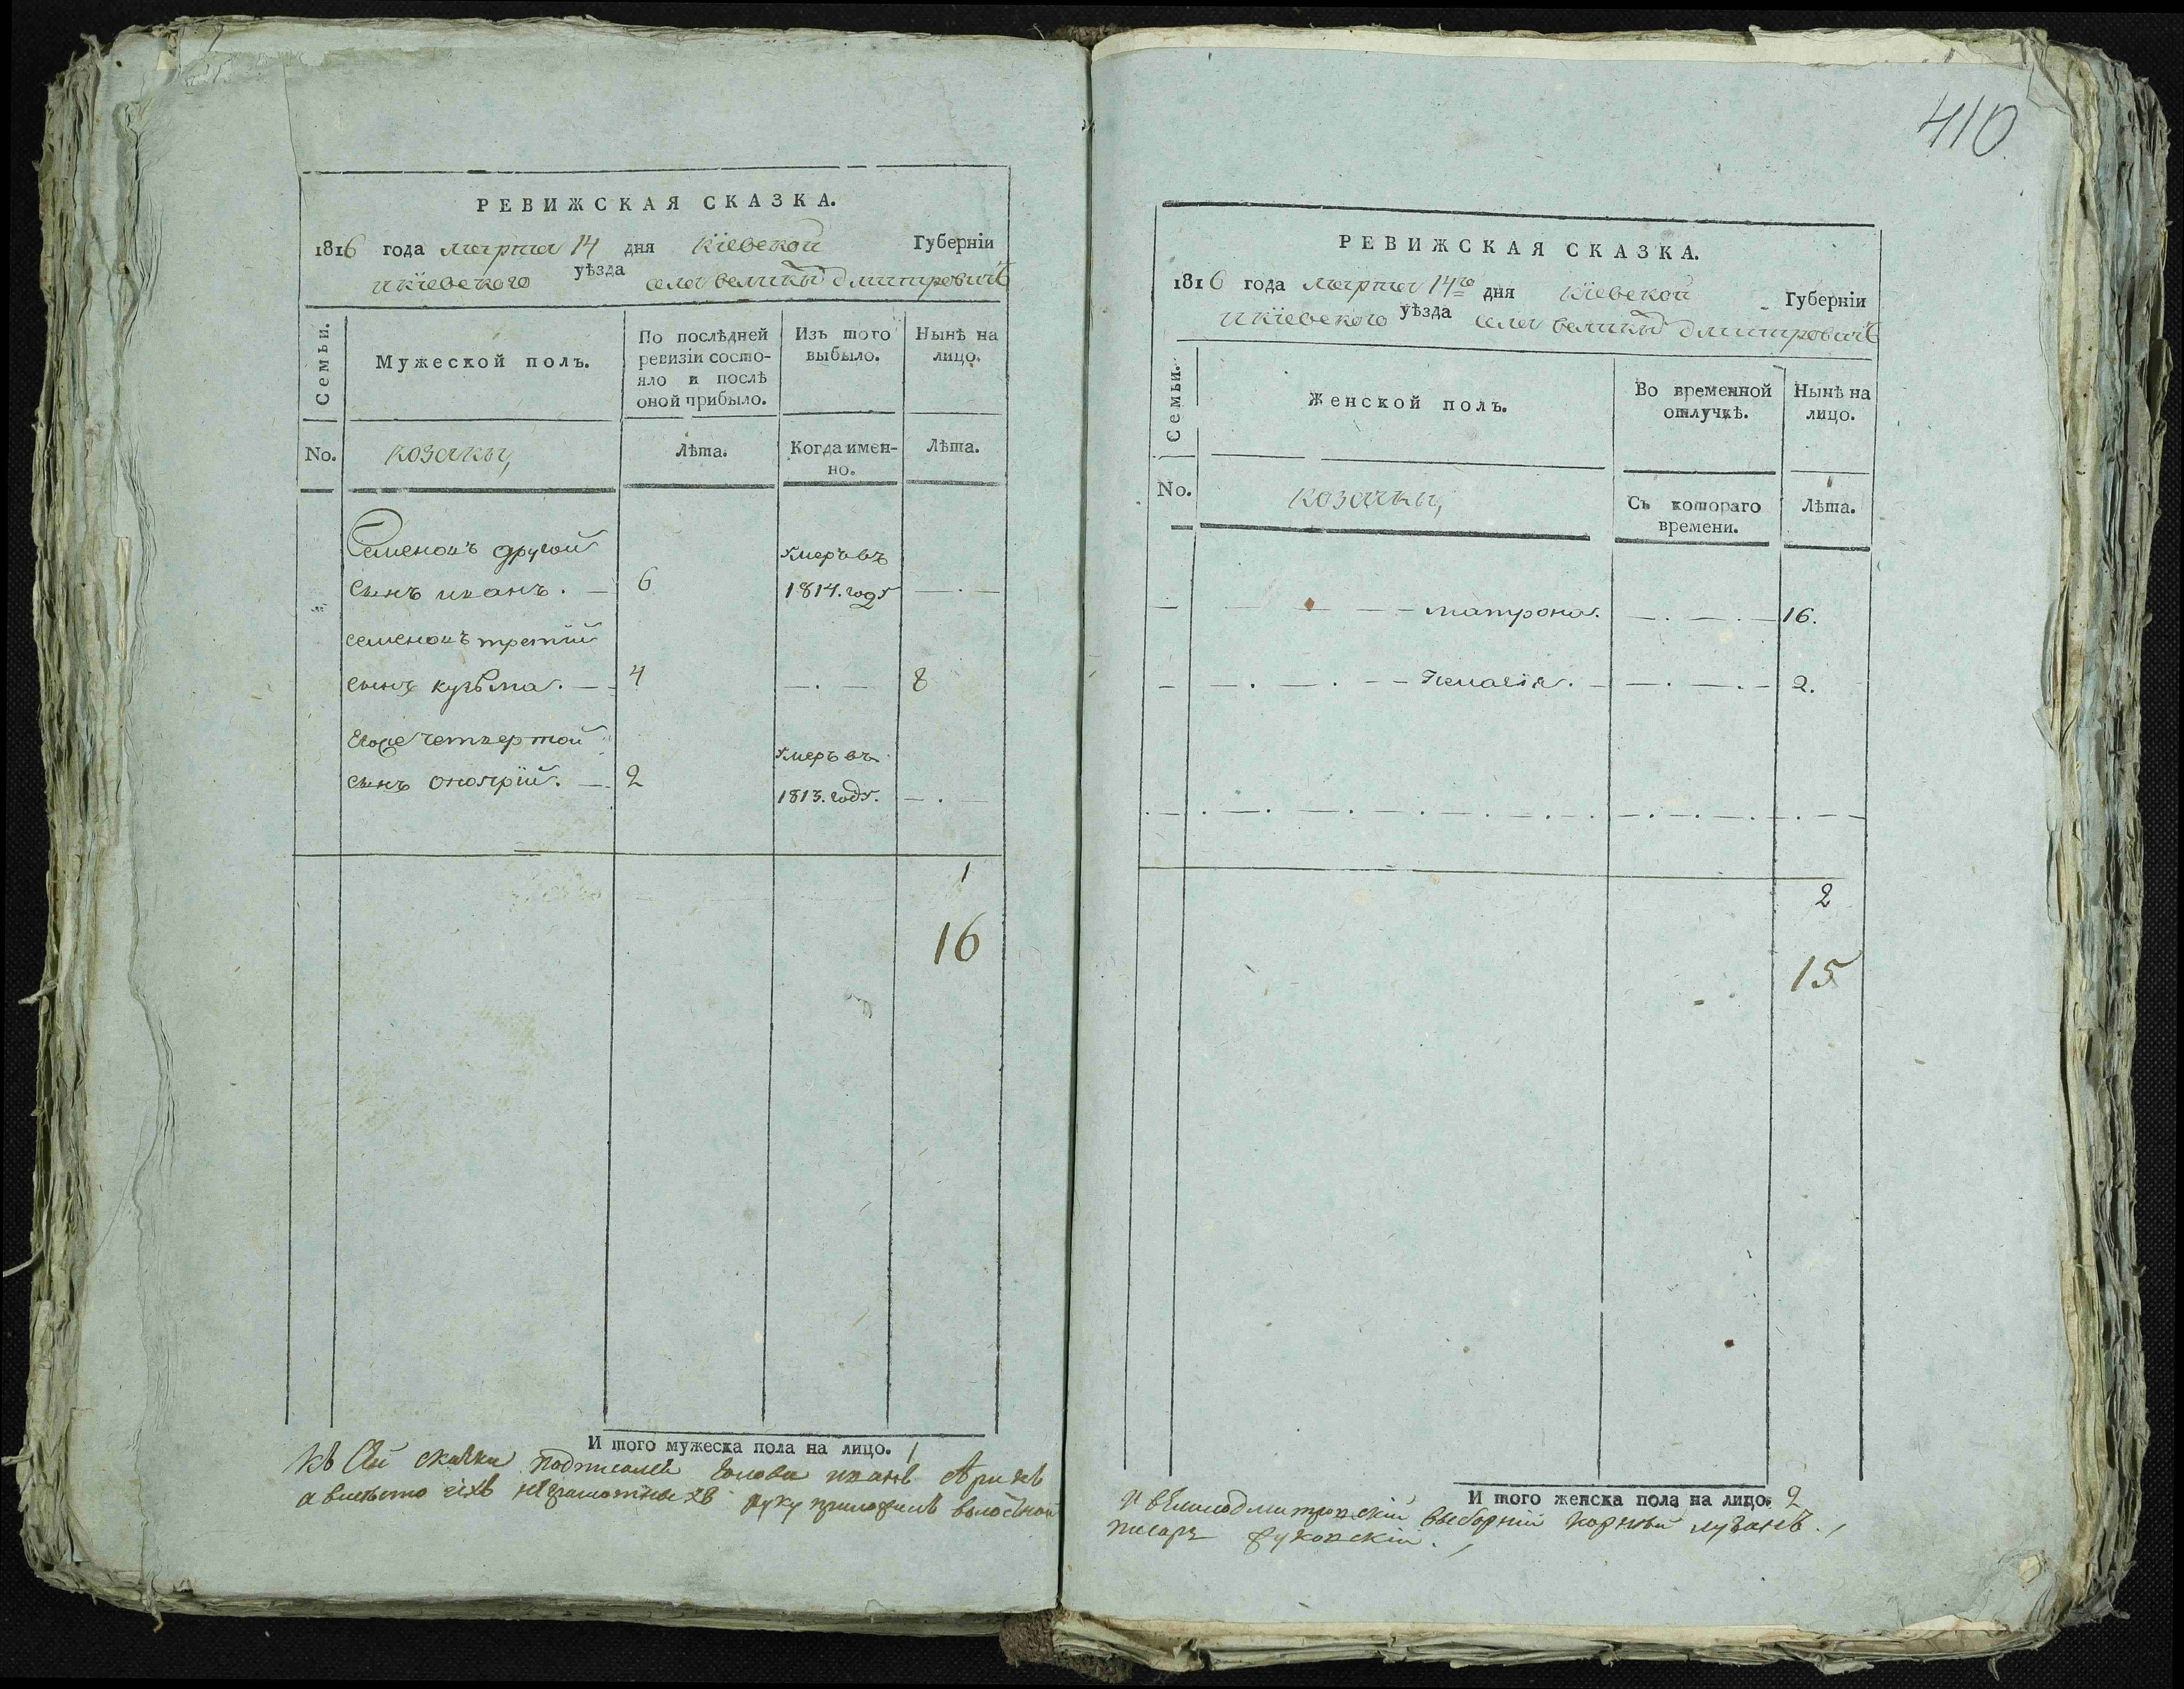 РЕВИЖСКАЯ СКАЗКА.
1816 года марта 14 дня Кіевской Губерніи
и кіевского уѣзда села великы дмитровичъ
Семьи.
Мужеской полъ.
По послѣдней ревизіи состояло и послѣ оной прибыло.
Изъ того выбыло.
Нынѣ на лицо.
No.
козаки,
Лѣта.
Когда именно.
Лѣта.
Семеновъ другой
умеръ въ
сынъ иванъ. — 6 1814. году — . —
семеновъ третій
сынъ кузьма. — 4 — . — 8
Егоже четвертой
умеръ въ
сынъ онофрій. — 2 1813. году. — . —
1
16
И того мужеска пола на лицо. 1
къ сей скаски подписался голова иванъ
а вместо ихъ неграмотныхъ руку приложилъ волостной
410
РЕВИЖСКАЯ СКАЗКА.
1816 года марта 14го дня Кіевской Губерніи
и кіевского уѣзда села великы дмитровичъ
Семьи.
Женской полъ.
Во временной отлучкѣ.
Нынѣ на лицо.
No.
козачкы,
Съ котораго времени.
Лѣта.
— матрона. — . — . — 16.
— Пелагія. — . — . — 2.
2
15
И того женска пола на лицо. 2
и выборній корнѣй
писарь